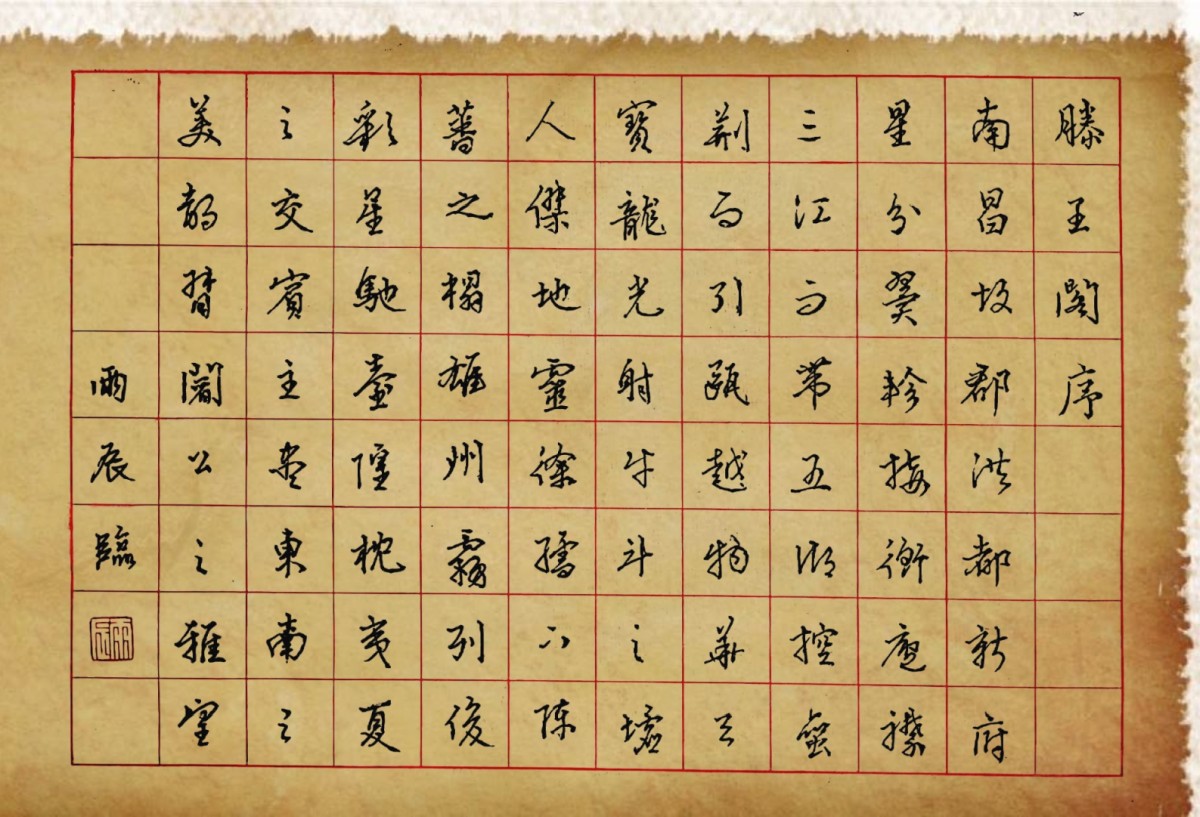 滕王閣序
南昌故郡洪都新府
星分翼軫接衡廬襟
三江而帶五湖控蠻
荊而引甌越物華天
寶龍光射牛斗之墟
人傑地靈徐孺下陳
蕃之榻雄州霧列俊
彩星馳臺隍枕夷夏
之交賓主盡東南之
美都督閻公之雅望
雨辰臨